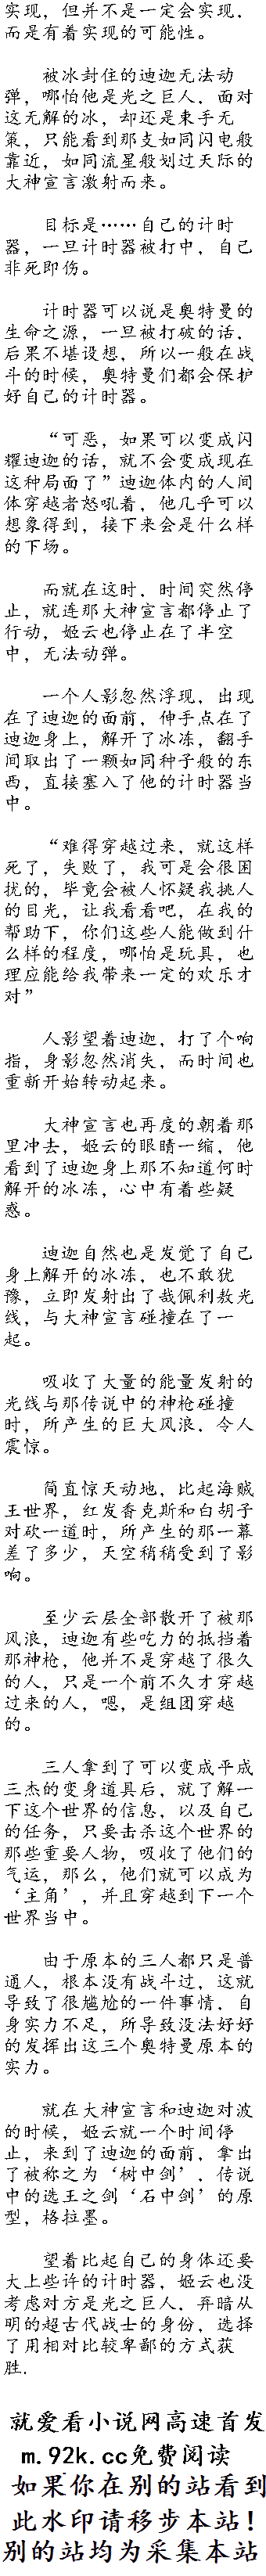 实现，但并不是一定会实现，
而是有着实现的可能性。
被冰封住的迪迦无法动
弹，哪怕他是光之巨人，面对
这无解的冰，却还是束手无
策，只能看到那支如同闪电般
靠近，如同流星般划过天际的
大神宣言激射而来。
目标是……自己的计时
器，一旦计时器被打中，自己
非死即伤。
计时器可以说是奥特曼的
生命之源，一旦被打破的话，
后果不堪设想，所以一般在战
斗的时候，奥特曼们都会保护
好自己的计时器。
“可恶，如果可以变成闪
耀迪迦的话，就不会变成现在
这种局面了”迪迦体内的人间
体穿越者怒吼着，他几乎可以
想象得到，接下来会是什么样
的下场。
而就在这时，时间突然停
止，就连那大神宣言都停止了
行动，姬云也停止在了半空
中，无法动弹。
一个人影忽然浮现，出现
在了迪迦的面前，伸手点在了
迪迦身上，解开了冰冻，翻手
间取出了一颗如同种子般的东
西，直接塞入了他的计时器当
中。
“难得穿越过来，就这样
死了，失败了，我可是会很困
扰的，毕竟会被人怀疑我挑人
的目光，让我看看吧，在我的
帮助下，你们这些人能做到什
么样的程度，哪怕是玩具，也
理应能给我带来一定的欢乐才
对”
人影望着迪迦，打了个响
指，身影忽然消失，而时间也
重新开始转动起来。
大神宣言也再度的朝着那
里冲去，姬云的眼睛一缩，他
看到了迪迦身上那不知道何时
解开的冰冻，心中有着些疑
惑。
迪迦自然也是发觉了自己
身上解开的冰冻，也不敢犹
豫，立即发射出了哉佩利敖光
线，与大神宣言碰撞在了一
起。
吸收了大量的能量发射的
光线与那传说中的神枪碰撞
时，所产生的巨大风浪，令人
震惊。
简直惊天动地，比起海贼
王世界，红发香克斯和白胡子
对砍一道时，所产生的那一幕
差了多少，天空稍稍受到了影
响。
至少云层全部散开了被那
风浪，迪迦有些吃力的抵挡着
那神枪，他并不是穿越了很久
的人，只是一个前不久才穿越
过来的人，嗯，是组团穿越
的。
三人拿到了可以变成平成
三杰的变身道具后，就了解一
下这个世界的信息，以及自己
的任务，只要击杀这个世界的
那些重要人物，吸收了他们的
气运，那么，他们就可以成为
‘主角’，并且穿越到下一个
世界当中。
由于原本的三人都只是普
通人，根本没有战斗过，这就
导致了很尴尬的一件事情，自
身实力不足，所导致没法好好
的发挥出这三个奥特曼原本的
实力。
就在大神宣言和迪迦对波
的时候，姬云就一个时间停
止，来到了迪迦的面前，拿出
了被称之为‘树中剑’，传说
中的选王之剑‘石中剑’的原
型，格拉墨。
望着比起自己的身体还要
大上些许的计时器，姬云也没
考虑对方是光之巨人，弃暗从
明的超古代战士的身份，选择
了用相对比较卑鄙的方式获
胜.
就爱看小说网高速首发
m.92k.cc免费阅读
如果你在别的站看到
此水印请移步本站！
别的站均为采集本站